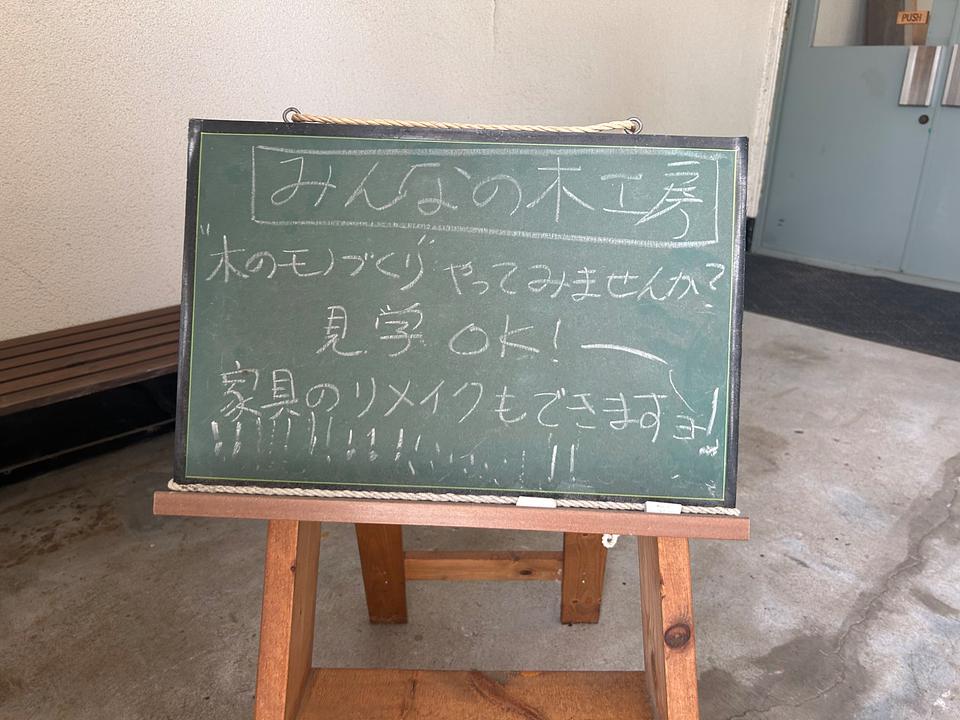 PUSH
みんなの木工房
"木のモノづくり" やってみませんか?
見学 OK!
家具のリメイクもできますョ!